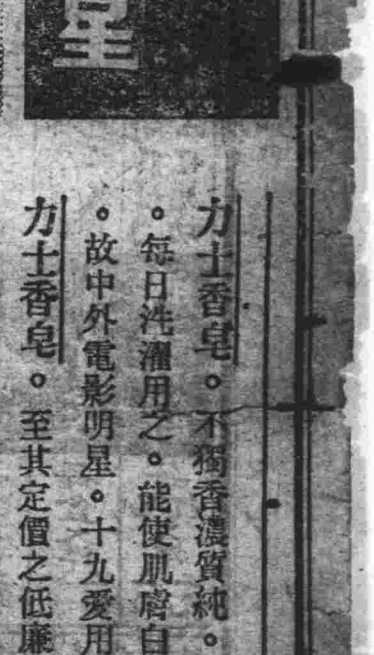 星
力士香皂。不獨香濃質純。
。每日洗濯用之。能使肌膚白
。故中外電影明星。十九愛用
力士香皂。至其定價之低廉